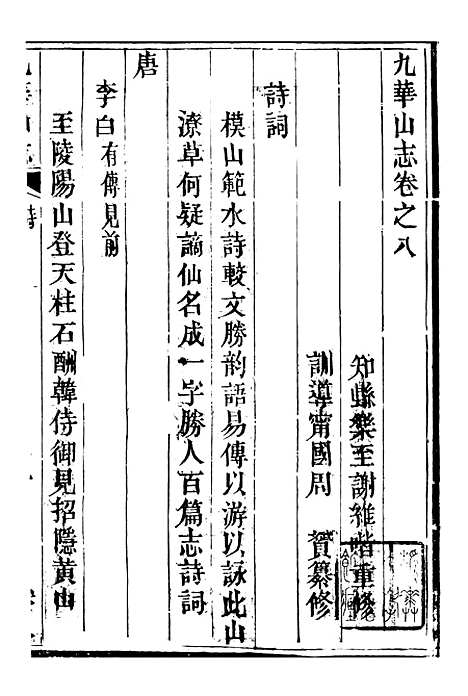 九華山志卷之八
知縣樂至謝維喈重修
訓導甯國周贇纂修
詩詞
模山範水詩較文勝韵語易傳以游以詠此山
潦草何疑謫仙名成一字勝人百篇志詩詞
唐
李白有傳見前
至陵陽山登天柱石酬韓侍御見招隱黃山